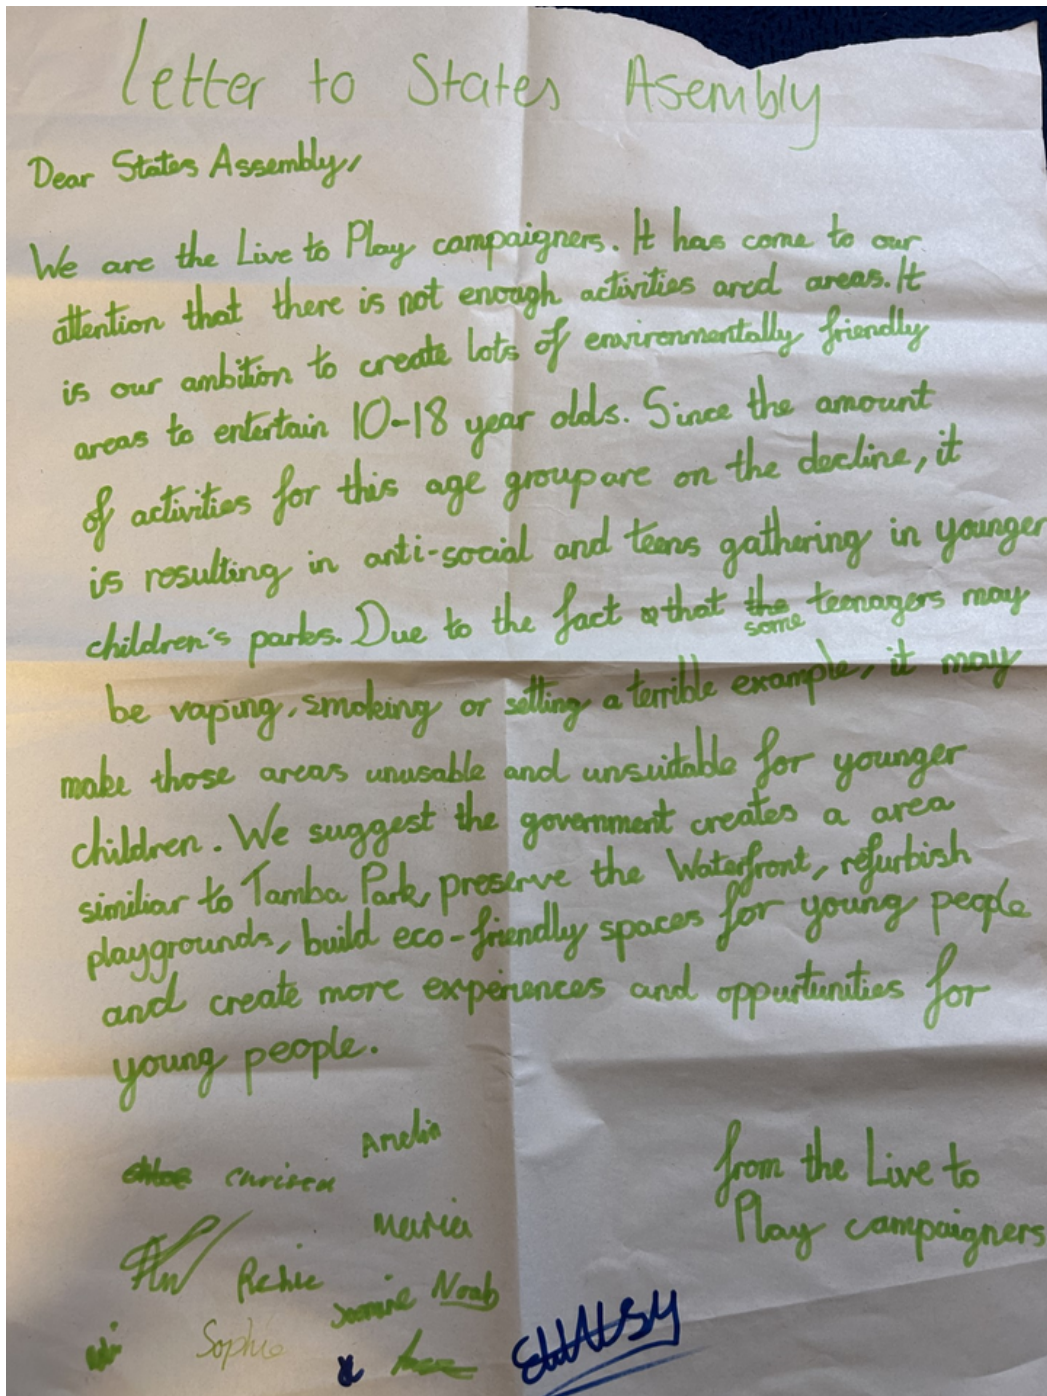 Letter to States Asembly
Dear States Assembly,
We are the Live to Play campaigners. It has come to our
attention that there is not enough activities ared areas. It
is our ambition to create lots of environmentally friendly
areas to entertain 10-18 year olds. Since the amount
of activities for this age group are on the decline, it
is resulting in anti-social and teens gathering in younger
children's parks. Due to the fact that the teenagers may
some
be vaping, smoking or setting a terrible example, it may
make those areas unusable and unsuitable for younger
children. We suggest the government creates a area
similiar to Tamba Park, preserve the Waterfront, refurbish
playgrounds, build eco-friendly spaces for young people
and create more experiences and oppurtunities for
young people.
Amelia
from the Live to
Play campaigners
chloe
Maria
Noab
Sophie